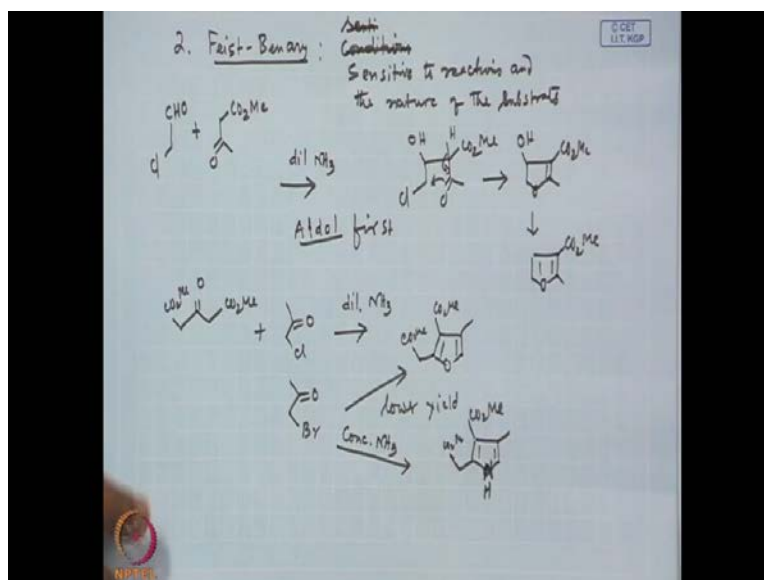 C CET
I.I.T. KGP
2. Feist-Benary : Senti
Conditions
Sensitive to reactions and
the nature of the substrate
CHO
+
CO2Me
Cl
O
dil NH3
Aldol first
OH
H
CO2Me
Cl
O
OH
CO2Me
O
CO2Me
O
CO2Me
O
CO2Me
+
O
Cl
dil. NH3
CO2Me
CO2Me
O
O
Br
lower yield
Conc. NH3
CO2Me
CO2Me
N
H
NPTEL